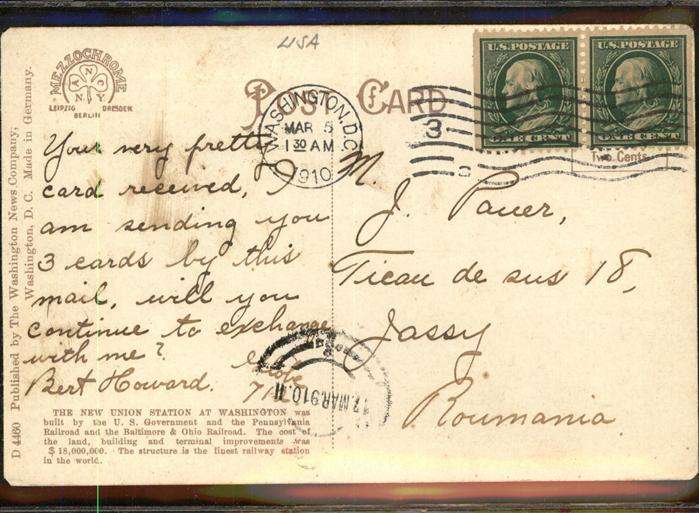 USA
MEZZOCHROME
A
N C
N Y
LEIPZIG DRESDEN
BERLIN
POST CARD
WASHINGTON, D.C.
MAR 5
1 30 AM
1910
3
U.S. POSTAGE
ONE CENT
U.S. POSTAGE
ONE CENT
Two Cents
Your very pretty
card received, I
am sending you
3 cards by this
mail, will you
continue to exchange
with me?
Bert Howard.
M.
J. Pauer,
Ticau de sus 18,
Jassy
Roumania.
MAR 910 11
THE NEW UNION STATION AT WASHINGTON was
built by the U. S. Government and the Pennsylvania
Railroad and the Baltimore & Ohio Railroad. The cost of
the land, building and terminal improvements was
$18,000,000. The structure is the finest railway station
in the world.
D 4460 Published by The Washington News Company,
Washington, D. C. Made in Germany.